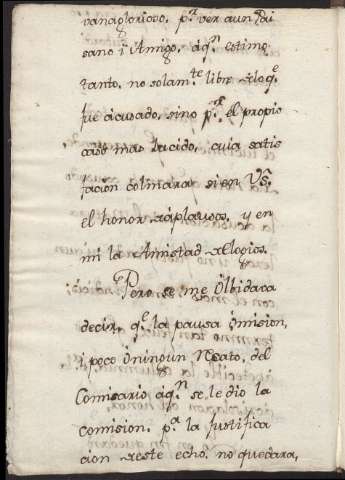 vanaglorioso, p.r ver a un Pai
sano i Amigo, aq.n estimo
tanto, no solam.te libre de loq.e
fue acusado, sino p.r el propio
caso mas lucido, cuia satis
facion colmara si en Vs.
el honor de aplausos, y en
mi la Amistad de elogios.
Pero se me Olbidava
decir, q.e la pausa Omision,
i poco o ningun Reato, del
Comisario aq.n se le dio la
comision. p.a la justifica
cion de este echo. no quedara,